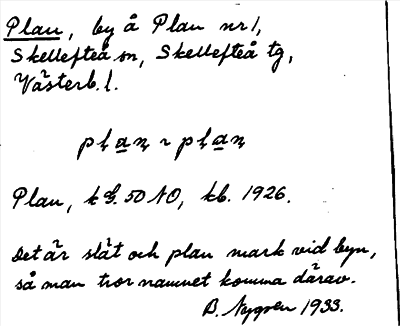 Plan, by å Plan nr 1,
Skellefteå sn, Skellefteå tg,
Västerb. l.
pḷa̲ṇ ~ pḷa̲ṇ
Plan, 50 NO, kb. 1926.
Det är slät och plan mark vid byn,
så man tror namnet komma därav.
B. Nygren 1933.